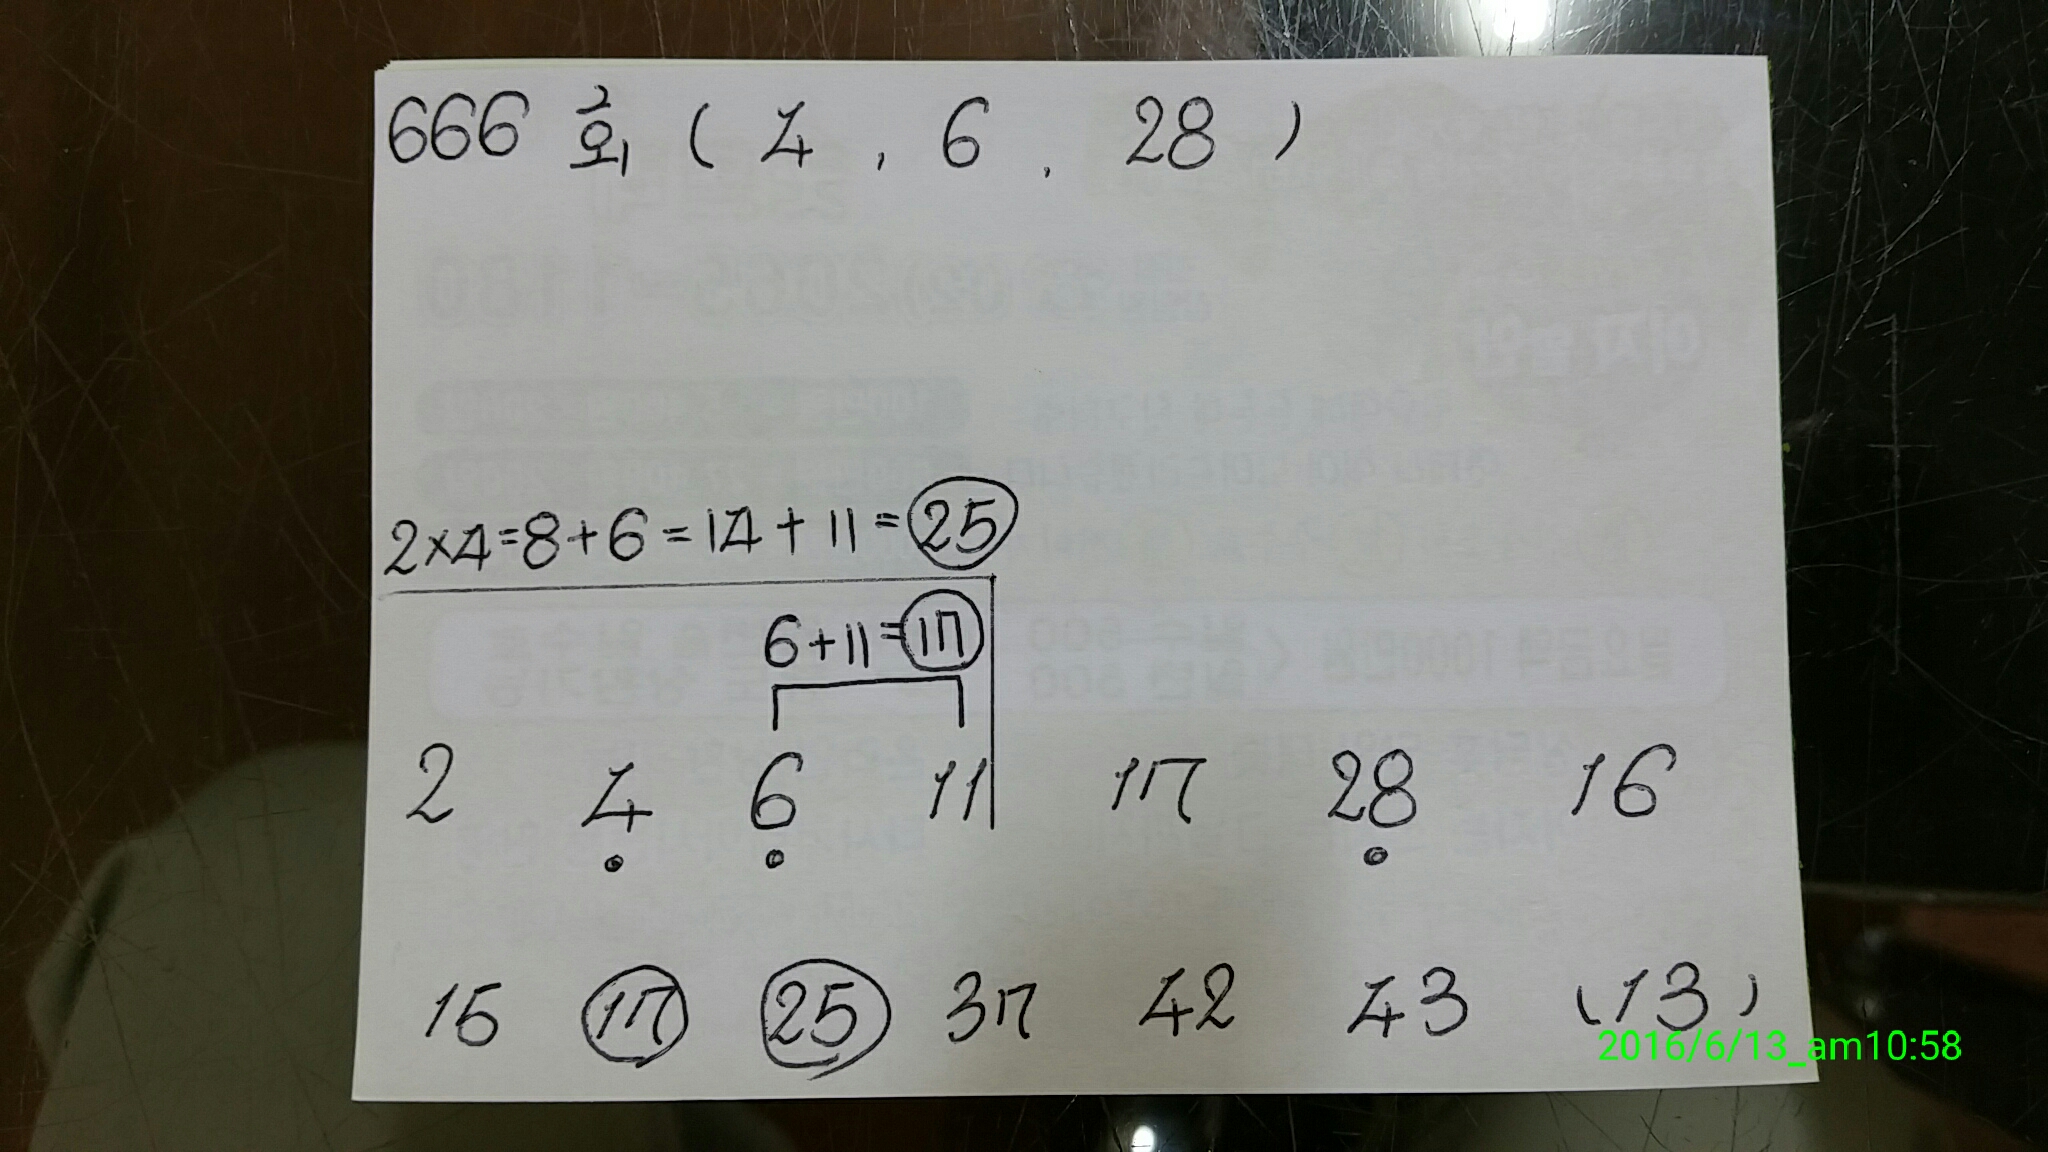 666 회 ( 4 , 6 , 28 )
2×4=8+6=14+11=25
6+11=17
2 4 6 11 17 28 16
15 17 25 37 42 43 (13)
2016/6/13_am10:58